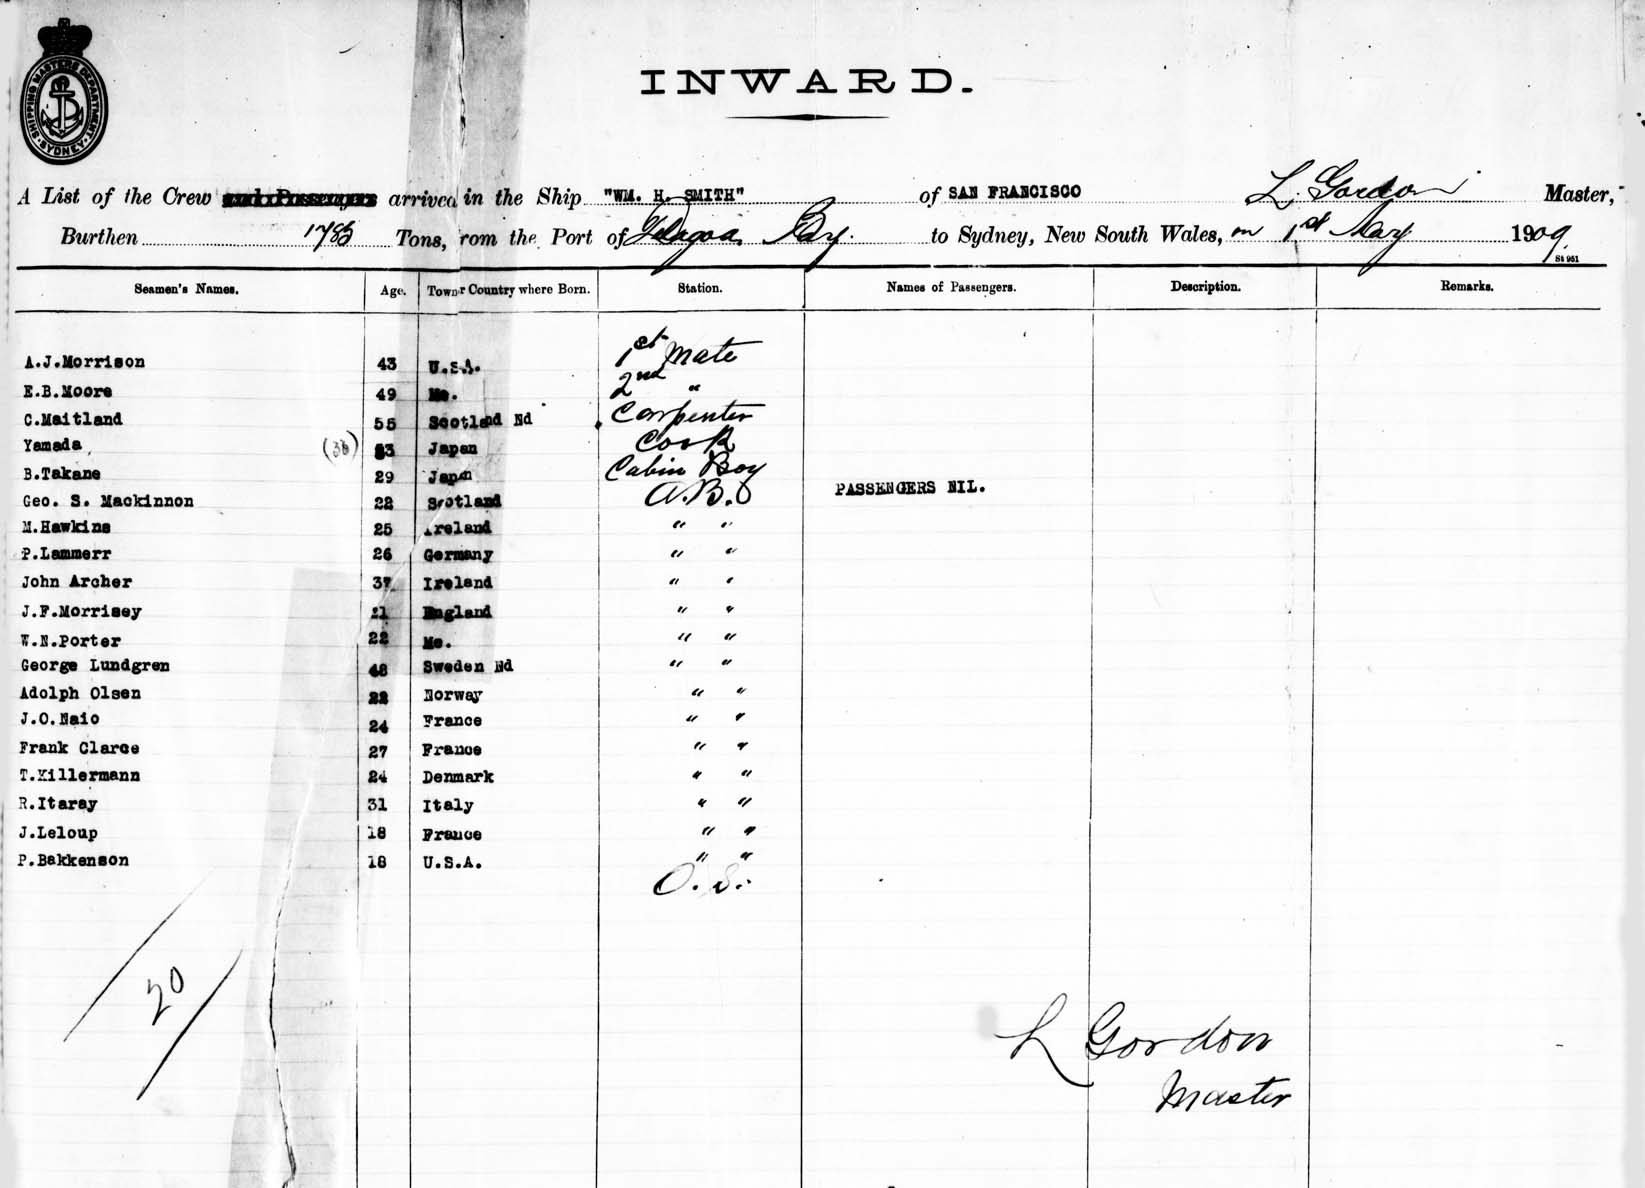 SHIPPING MASTERS DEPARTMENT · SYDNEY ·
INWARD.
A List of the Crew and Passengers arrived in the Ship "WM. H. SMITH" of SAN FRANCISCO L. Gordon Master,
Burthen Tons, rom the Port of Delagoa Bay. to Sydney, New South Wales, on 1st May 1909
St 951
Seamen's Names. Age. Town r Country where Born. Station. Names of Passengers. Description. Remarks.
A.J.Morrison 43 U.S.A. 1st Mate
E.B.Moore 49 Me. 2nd "
C.Maitland 55 Scotland Nd Carpenter
Yamada (38) Japan Cook
B.Takane 29 Japan Cabin Boy
Geo. S. Mackinnon 22 Scotland A.B. PASSENGERS NIL.
M.Hawkins 25 Ireland " "
P.Lammerr 26 Germany " "
John Archer 37 Ireland " "
J.F.Morrisey 21 England " "
W.N.Porter 22 Me. " "
George Lundgren 48 Sweden Nd " "
Adolph Olsen 22 Norway " "
J.O.Naio 24 France " "
Frank Claroe 27 France " "
T.Killermann 24 Denmark " "
R.Itaray 31 Italy " "
J.Leloup 18 France " "
P.Bakkenson 18 U.S.A. " "
O.S.
20
L Gordon
Master